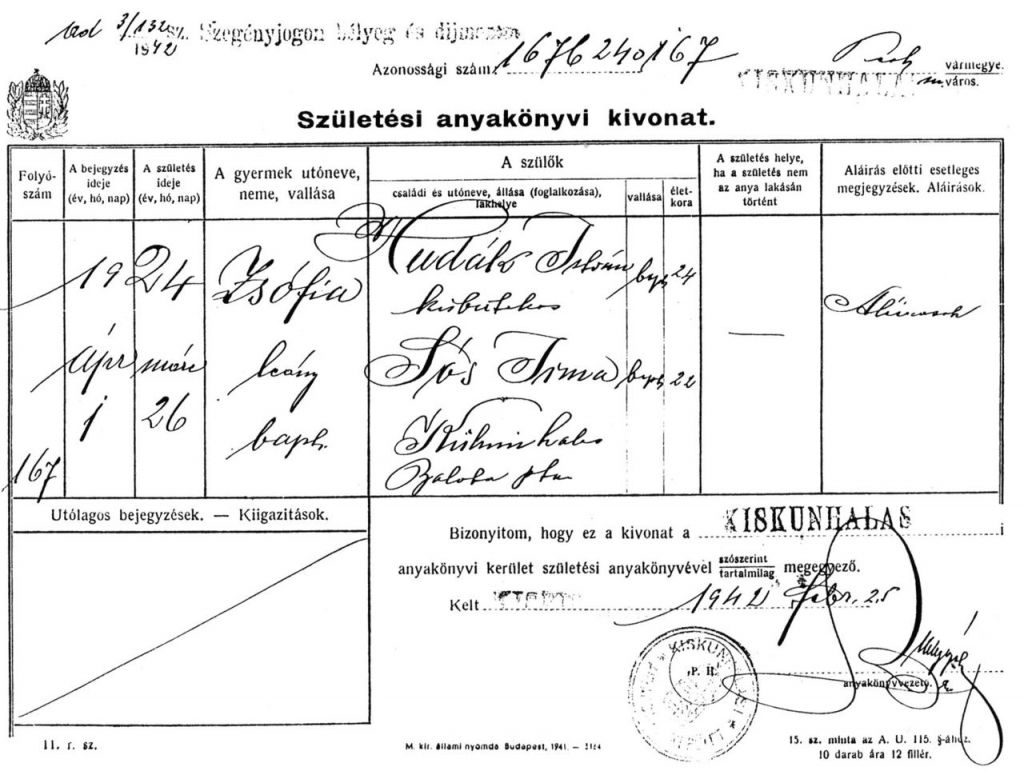 ad 3/132 sz. Szegényjogon bélyeg és díjmentes
1942
Azonossági szám: 1676240167
Pest vármegye.
KISKUNHALAS m. város.
Születési anyakönyvi kivonat.
Folyó-szám
A bejegyzés ideje (év, hó, nap)
A születés ideje (év, hó, nap)
A gyermek utóneve, neme, vallása
A szülők
családi és utóneve, állása (foglalkozása), lakhelye
vallása
élet-kora
A születés helye, ha a születés nem az anya lakásán történt
Aláírás előtti esetleges megjegyzések. Aláírások.
1924 Zsófia Hudák István 24
kubikos
Aláírások
ápr márc leány Sós Irma 22
1 26 baph.
Balota
167
Utólagos bejegyzések. — Kiigazitások.
Bizonyitom, hogy ez a kivonat a KISKUNHALAS i
anyakönyvi kerület születési anyakönyvével szószerint tartalmilag megegyező.
Kelt 1942 Febr. 25
KISKUNHALAS
P. H.
anyakönyvvezető.
11. r. sz.
M. kir. állami nyomda Budapest, 1941. — 3184
15. sz. minta az A. U. 115. §-ához.
10 darab ára 12 fillér.